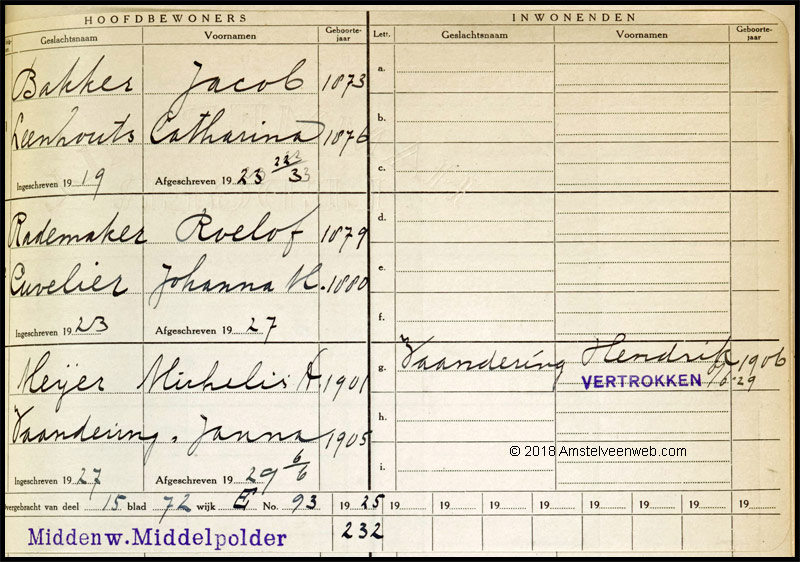 HOOFDBEWONERS
Geslachtsnaam Voornamen Geboorte-jaar
Bakker Jacob 1873
Leenhouts Catharina 1876
Ingeschreven 19 19 Afgeschreven 19 23 22/3
Rademaker Roelof 1879
Cuvelier Johanna M. 1880
Ingeschreven 19 23 Afgeschreven 19 27
Meijer Michelis A. 1901
Vaandering, Janna 1905
Ingeschreven 19 27 Afgeschreven 19 29 6/6
INWONENDEN
Lett. Geslachtsnaam Voornamen Geboorte-jaar
a.
b.
c.
d.
e.
f.
g. Vaandering Hendrik 1906
VERTROKKEN
h.
i.
© 2018 Amstelveenweb.com
vergebracht van deel 15 blad 72 wijk E No. 93 19 25 19 19 19 19 19 19 19 19
Midden w. Middelpolder 232